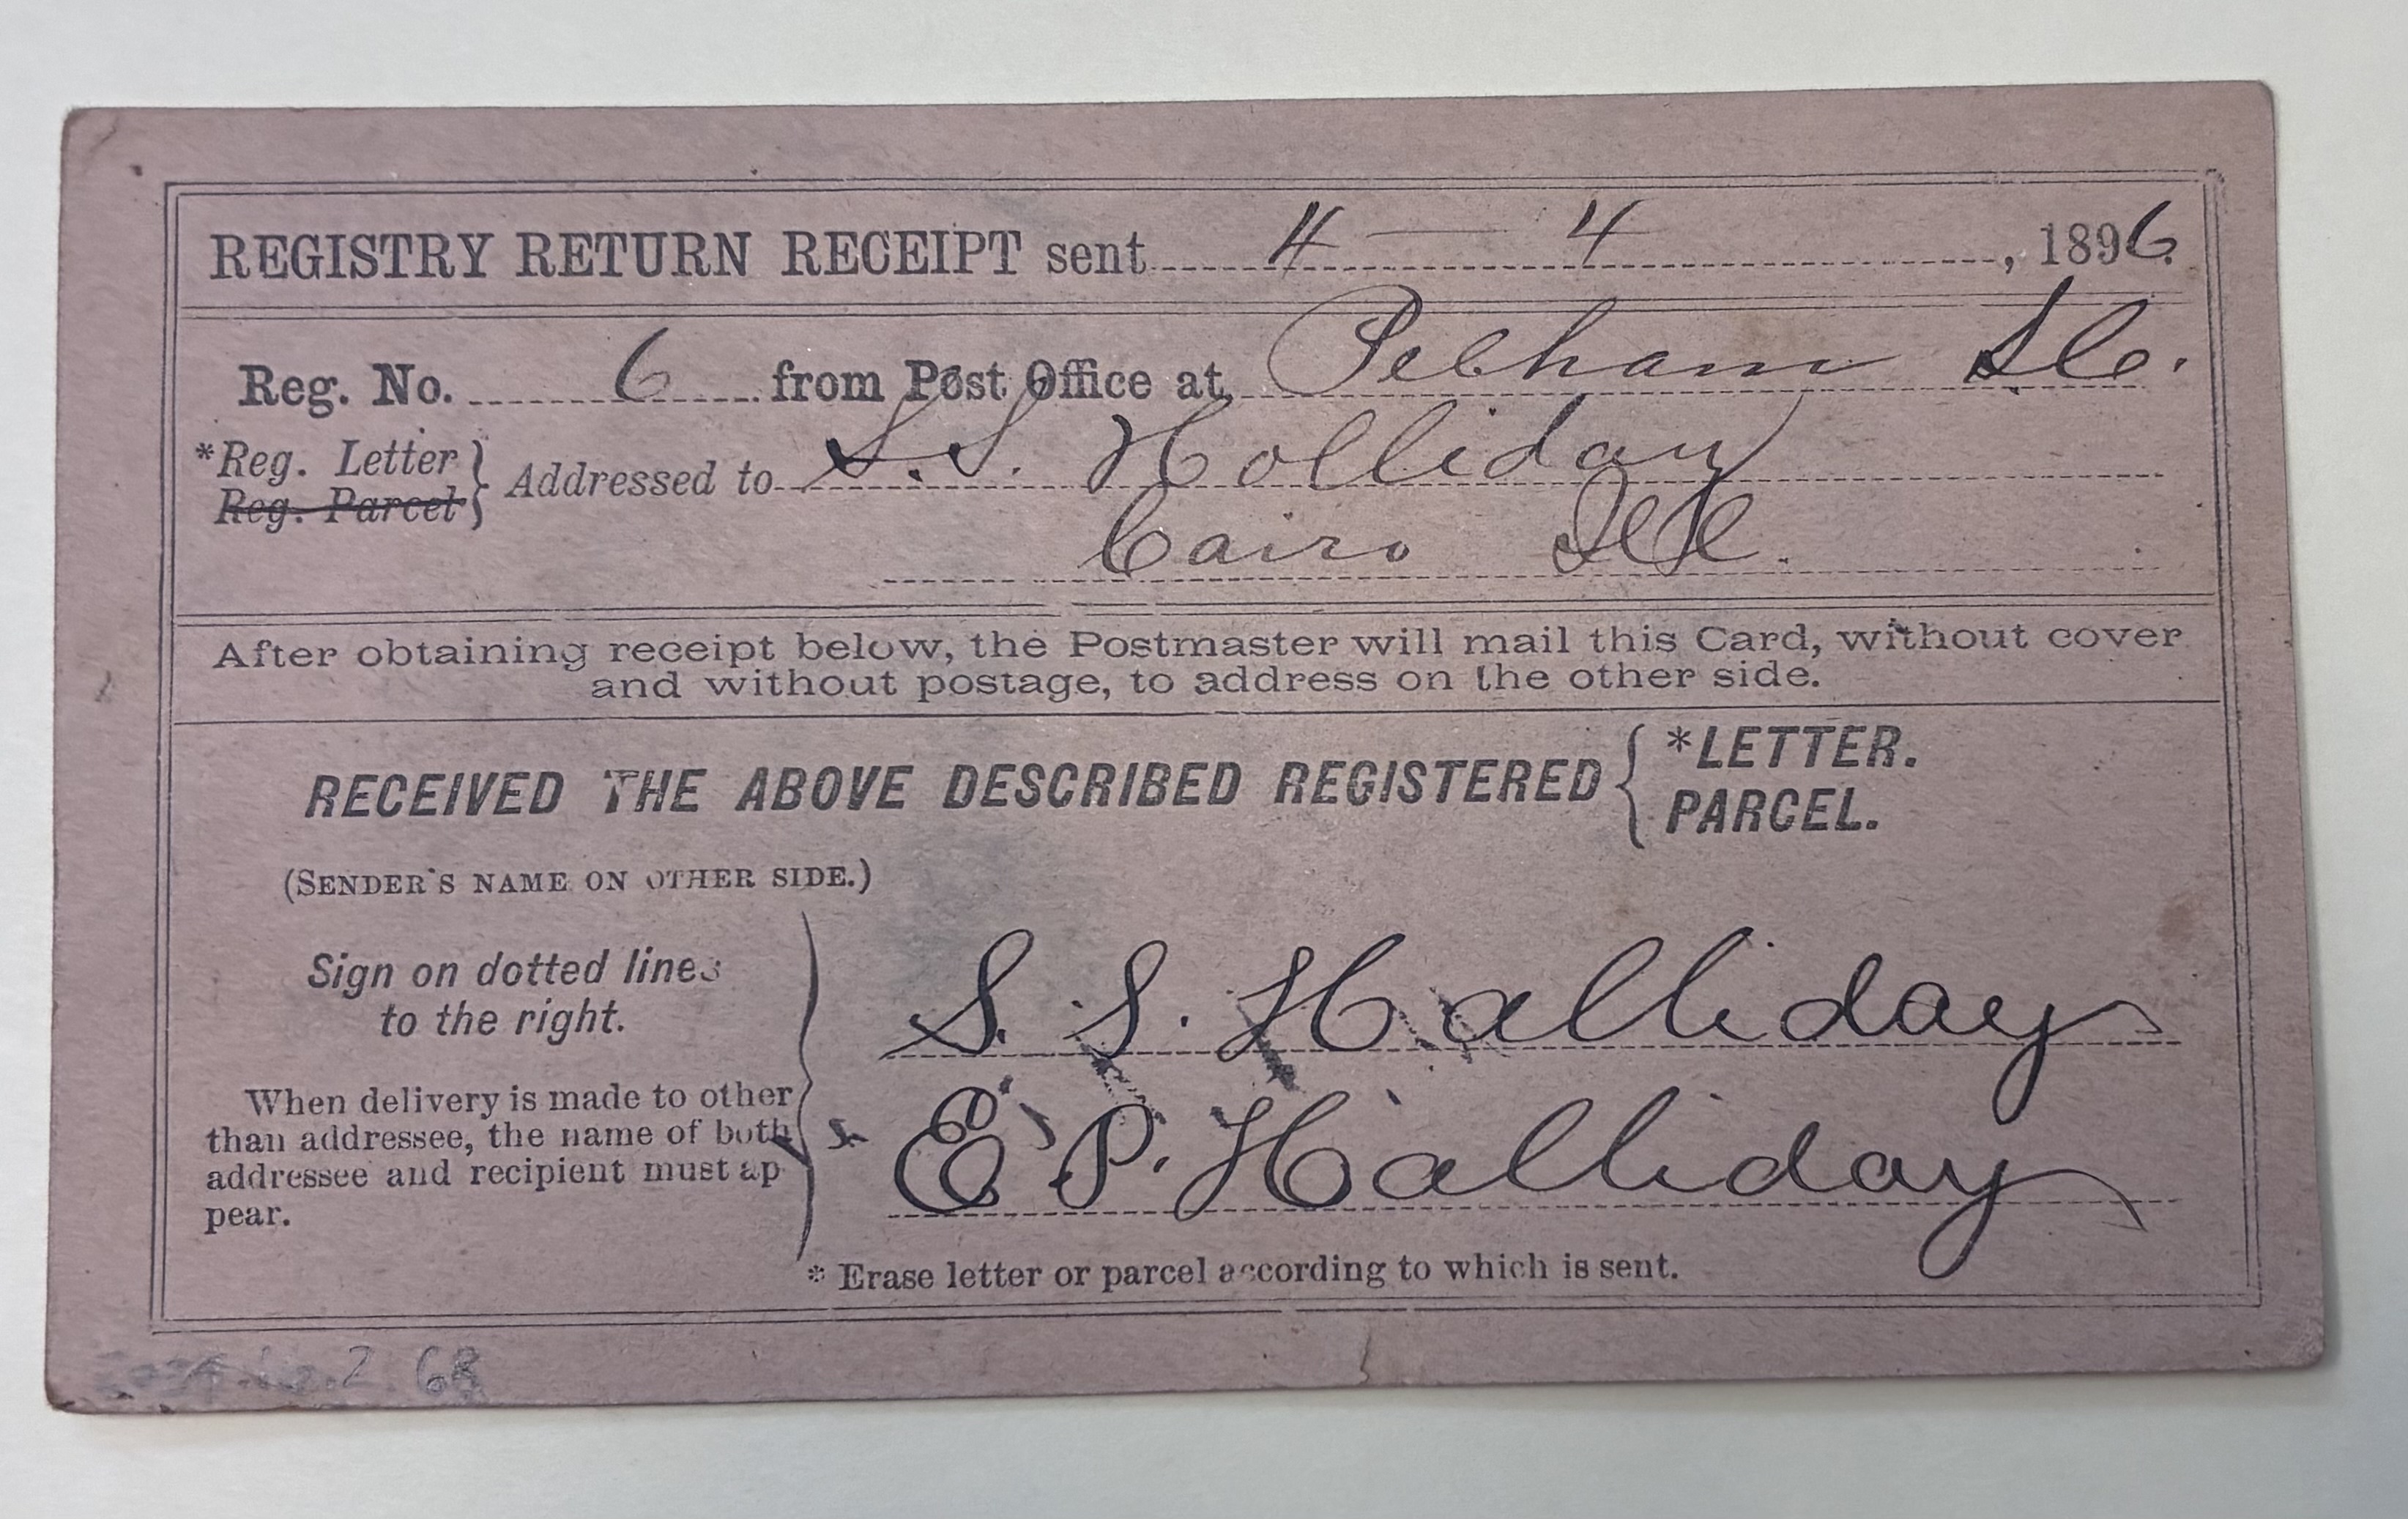 REGISTRY RETURN RECEIPT sent 4 — 4, 1896.
Reg. No. 6 from Post Office at Pelham S.C.
*Reg. Letter
Reg. Parcel } Addressed to S.S. Holliday
Cairo Ill.
After obtaining receipt below, the Postmaster will mail this Card, without cover
and without postage, to address on the other side.
RECEIVED THE ABOVE DESCRIBED REGISTERED { *LETTER.
PARCEL.
(SENDER'S NAME ON OTHER SIDE.)
Sign on dotted lines
to the right.
When delivery is made to other
than addressee, the name of both
addressee and recipient must ap
pear.
S. S. Halliday
E P. Halliday
* Erase letter or parcel according to which is sent.
2 68